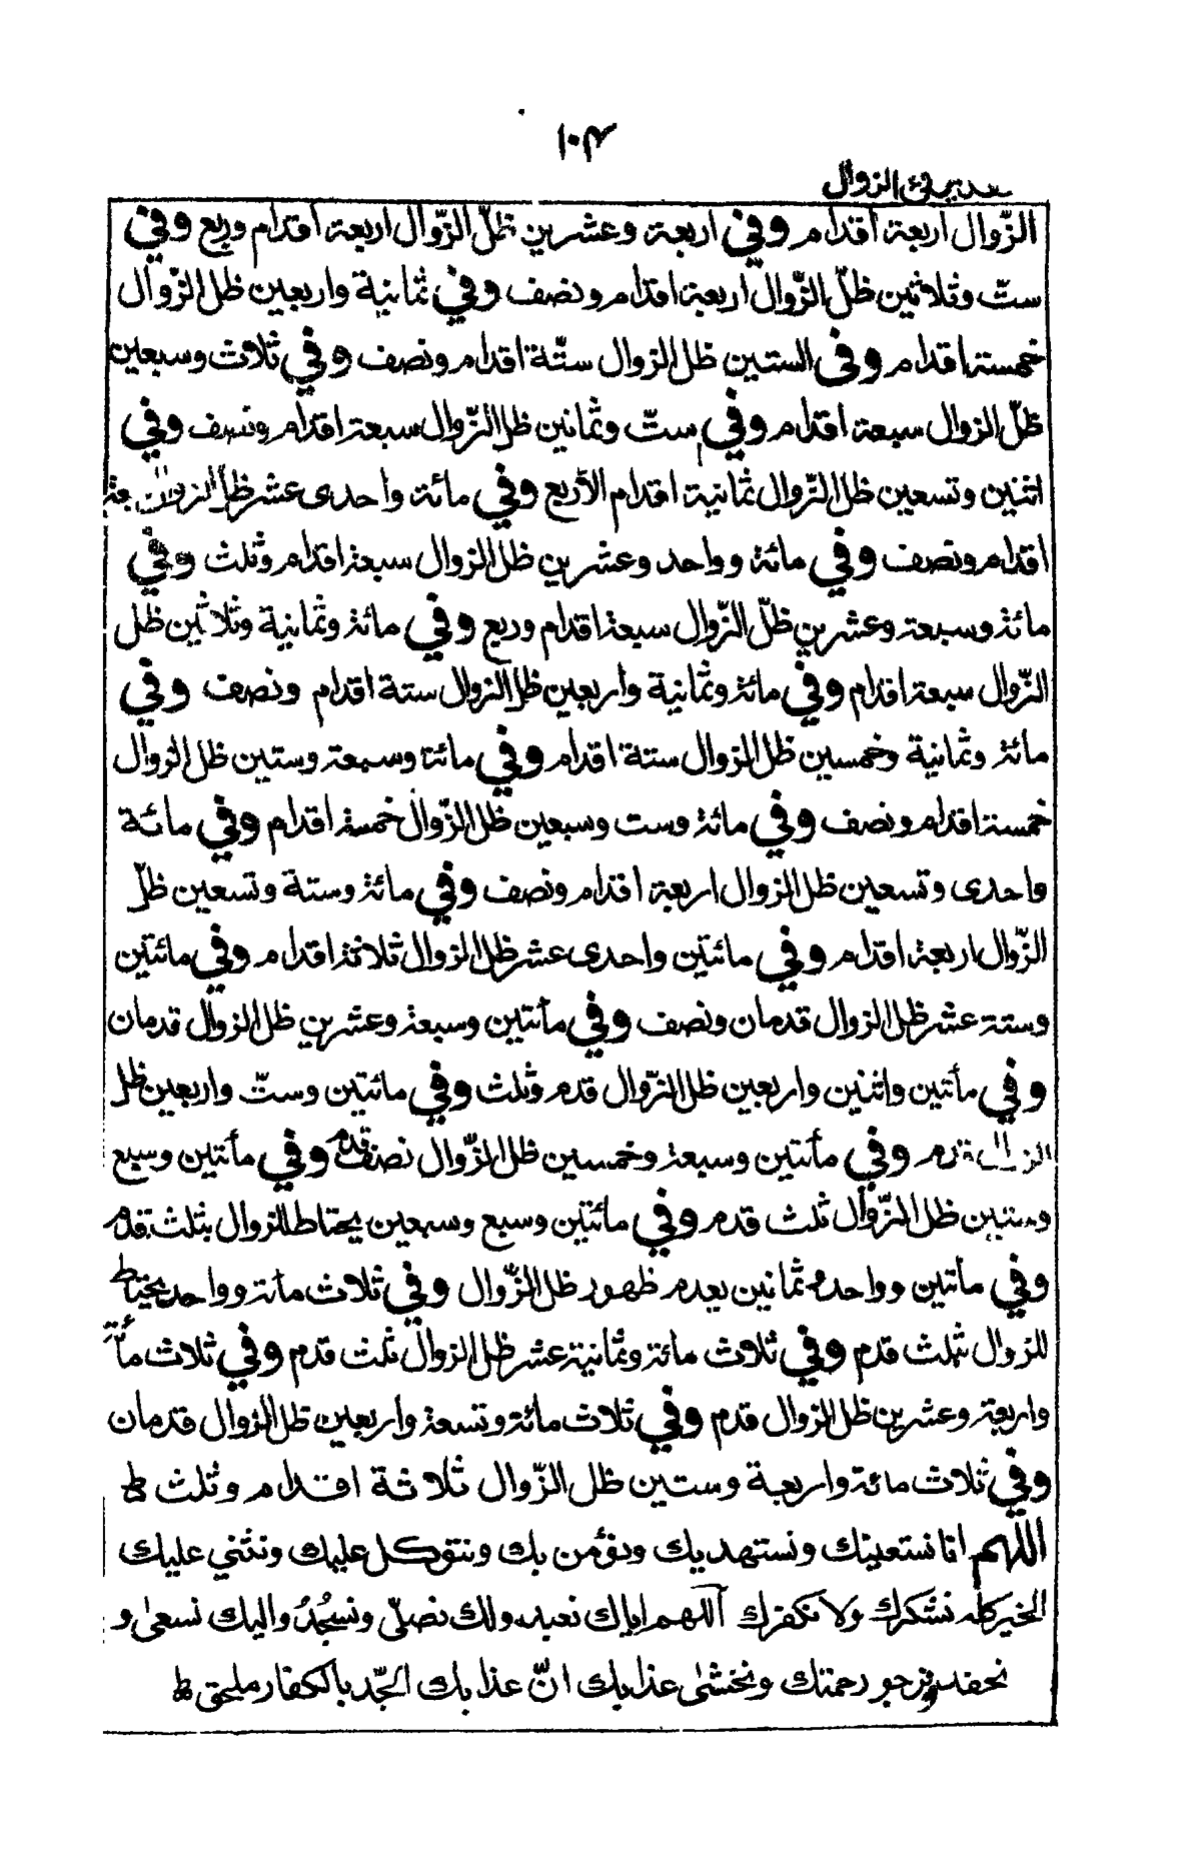 ١٠٣
فئ الزوال
الزّوال اربعة أقدام وفي اربعة وعشرين ظلّ الزّوال اربعة اقدام وربع وفي
ستّ وثلاثين ظلّ الزّوال اربعة اقدام ونصف وفي ثمانية واربعين ظل الزّوال
خمسة اقدام وفي الستين ظل الزوال ستّة اقدام ونصف وفي ثلاث وسبعين
ظلّ الزوال سبعة اقدام وفي ستّ وثمانين ظل الزّوال سبعة اقدام ونصف وفي
اثنين وتسعين ظل الزّوال ثمانية اقدام الأربع وفي مائة واحدى عشر ظل الزوال
اقدام ونصف وفي مائة وواحد وعشرين ظل الزوال سبعة اقدام وثلث وفي
مائة وسبعة وعشرين ظلّ الزّوال سبعة اقدام وربع وفي مائة وثمانية وثلاثين ظل
الزّوال سبعة اقدام وفي مائة وثمانية واربعين ظل الزوال ستة اقدام ونصف وفي
مائة وثمانية وخمسين ظل الزوال ستة اقدام وفي مائة وسبعة وستين ظل الزوال
خمسة اقدام ونصف وفي مائة وست وسبعين ظل الزّوال خمسة اقدام وفي مائة
واحدى وتسعين ظل الزوال اربعة اقدام ونصف وفي مائة وستة وتسعين ظلّ
الزّوال اربعة اقدام وفي مائتين واحدى عشر ظل الزوال ثلاثة اقدام وفي مائتين
وستة عشر ظل الزوال قدمان ونصف وفي مأتين وسبعة وعشرين ظل الزوال قدمان
وفي مأتين واثنين واربعين ظل الزّوال قدم وثلث وفي مائتين وستّ واربعين ظل
الزوال قدم وفي مأتين وسبعة وخمسين ظل الزّوال نصف قدم وفي مأتين وسبع
وستين ظل الزّوال ثلث قدم وفي مائتين وسبع وسبعين يحتاط للزوال بثلث قدم
وفي مأتين وواحد وثمانين يعدم ظهور ظل الزّوال وفي ثلاث مأة وواحد يحتاط
للزوال بثلث قدم وفي ثلاث مائة وثمانية عشر ظل الزوال ثلث قدم وفي ثلاث مأة
واربعة وعشرين ظل الزوال قدم وفي ثلاث مائة وتسعة واربعين ظل الزوال قدمان
وفي ثلاث مائة واربعة وستين ظل الزّوال ثلاثة اقدام وثلث ط
اللهم انا نستعينك ونستهديك ونؤمن بك ونتوكل عليك ونثني عليك
الخير كله نشكرك ولا نكفرك اللهم اياك نعبد ولك نصلّي ونسجُدُ واليك نسعى و
نحفد ونرجو رحمتك ونخشى عذابك انّ عذابك الجّد بالكفار ملحق ط